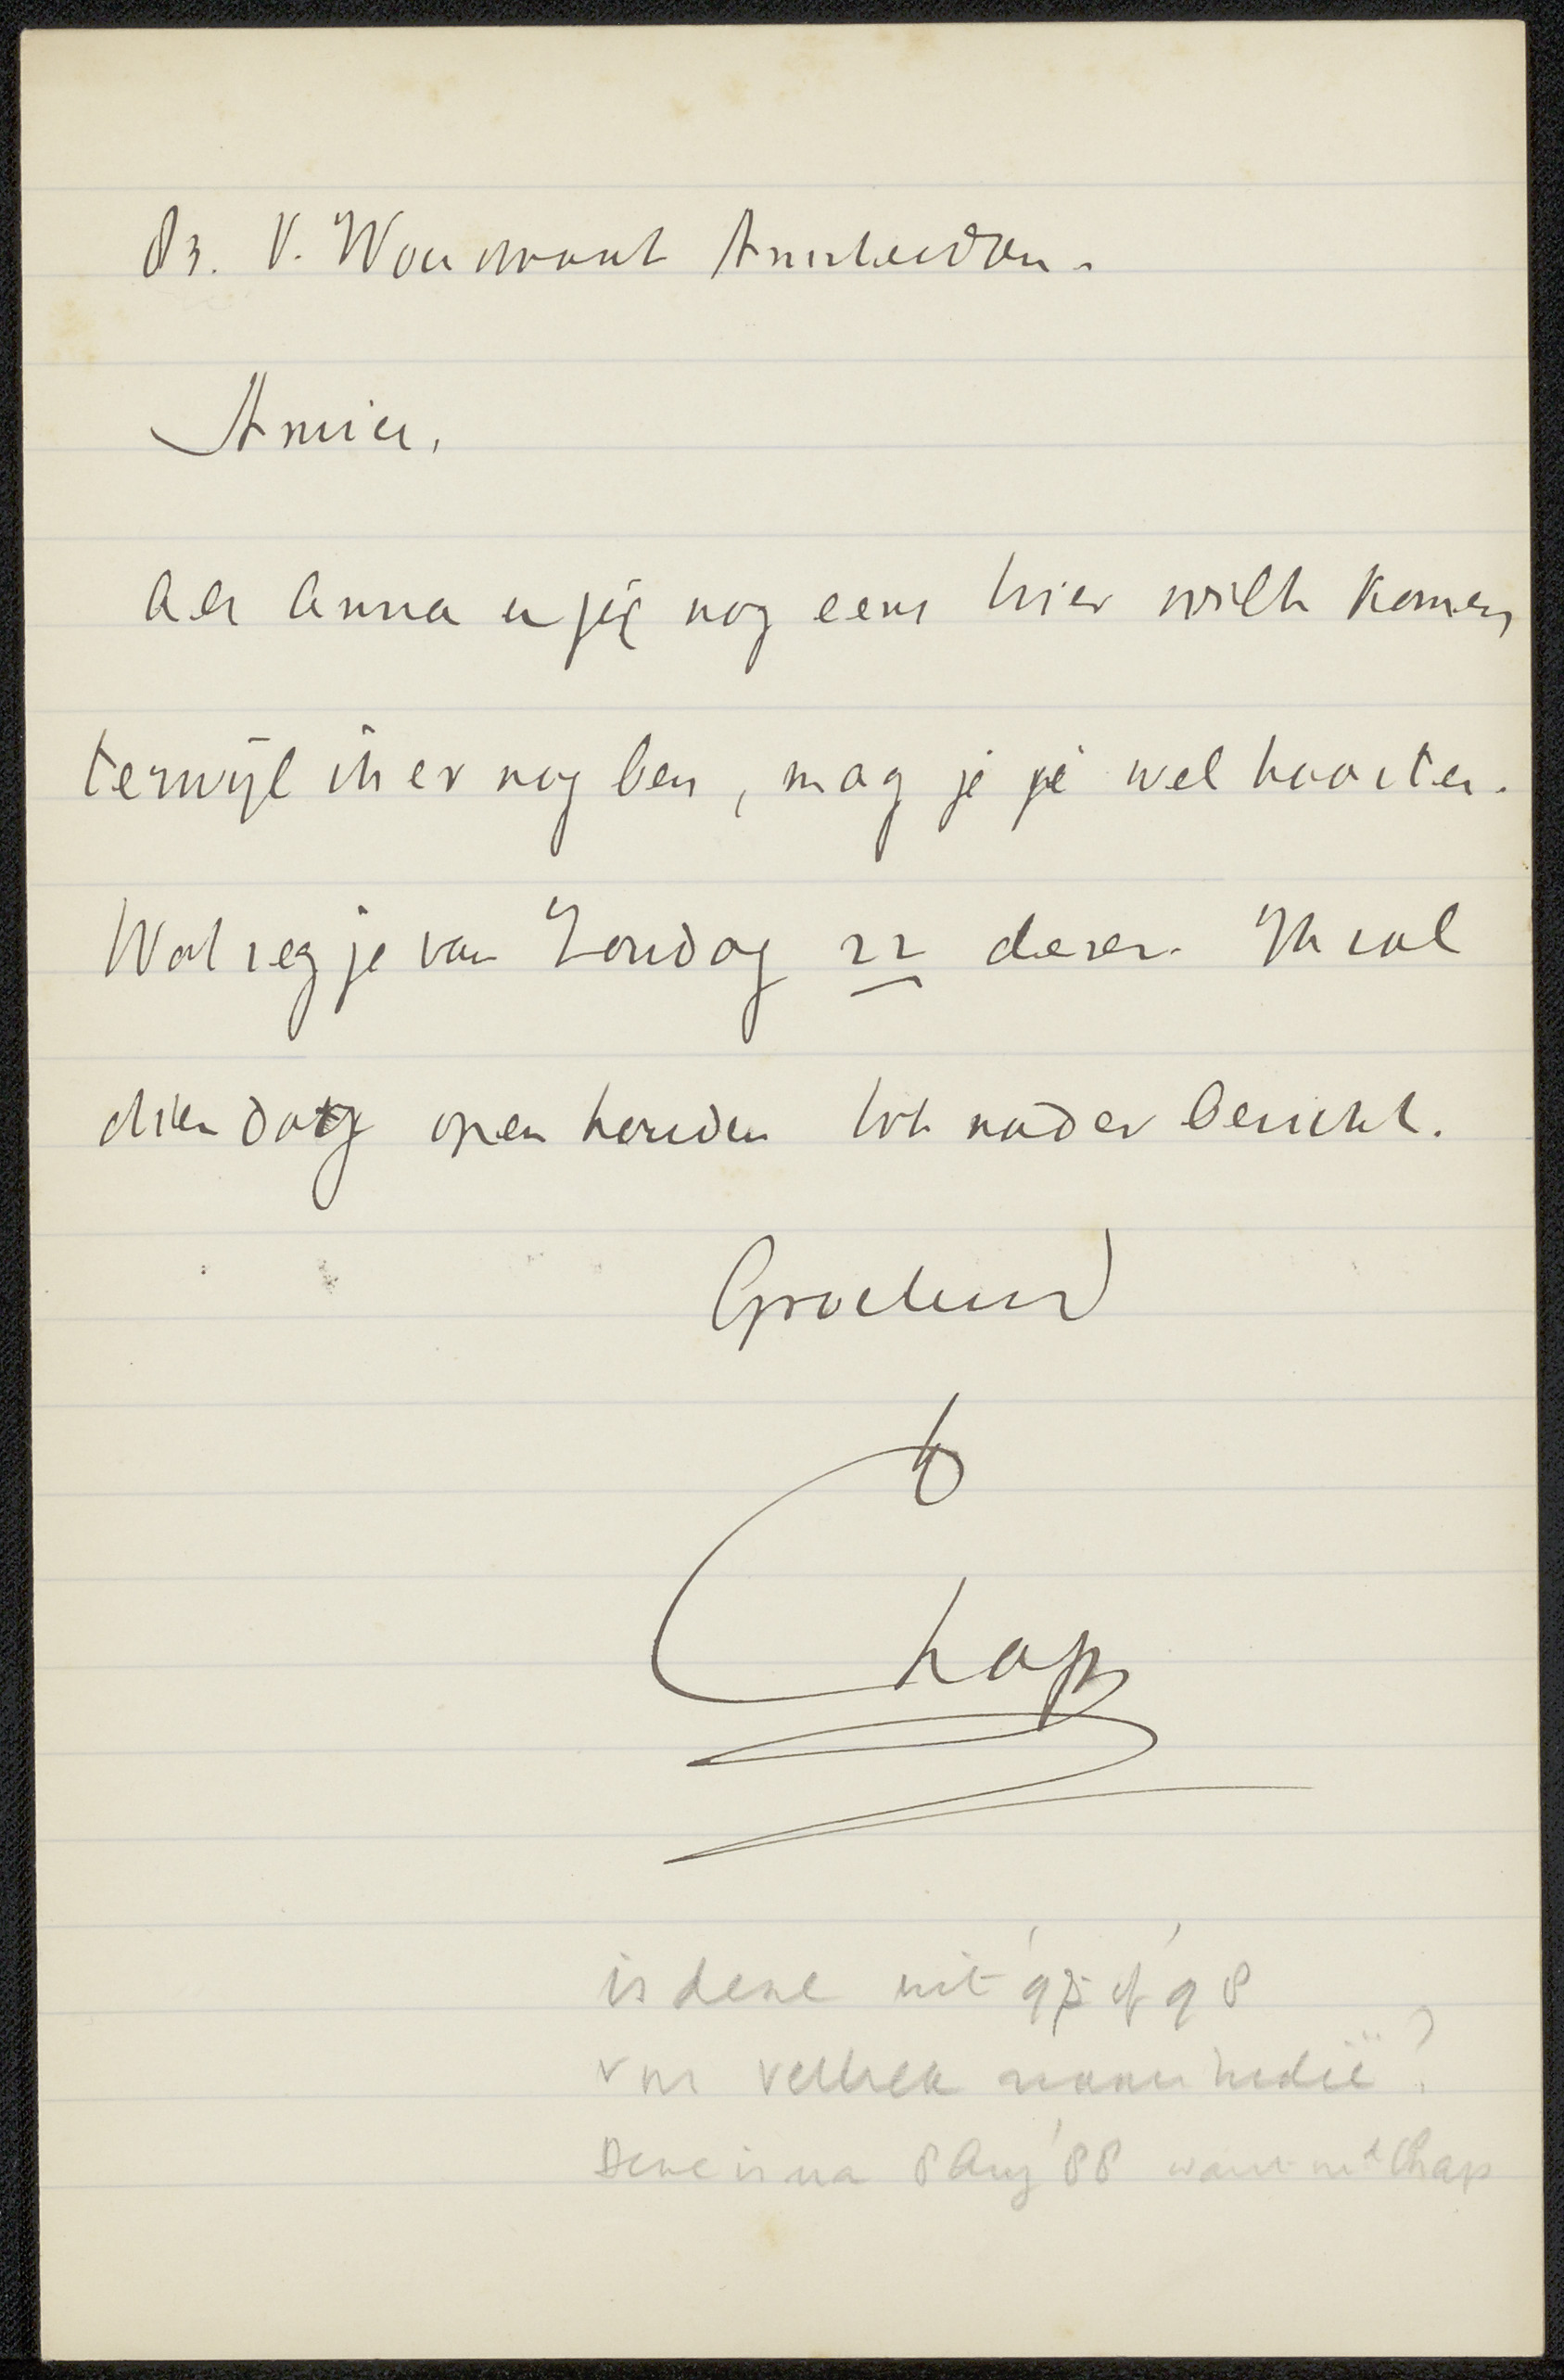 Dr. P. Amsterdam.
Amice,
Als Anna en jij nog eens hier wilt komen
terwijl ik er nog ben, mag je je wel haasten.
Wat zeg je van Zondag 22 dezer. Ik zal
dien dag open houden tot nader bericht.
Groetend
Chap
is deze uit '95 of '98
vóór vertrek naar Indië?
Deze is na 8 Aug '88 want met Chap